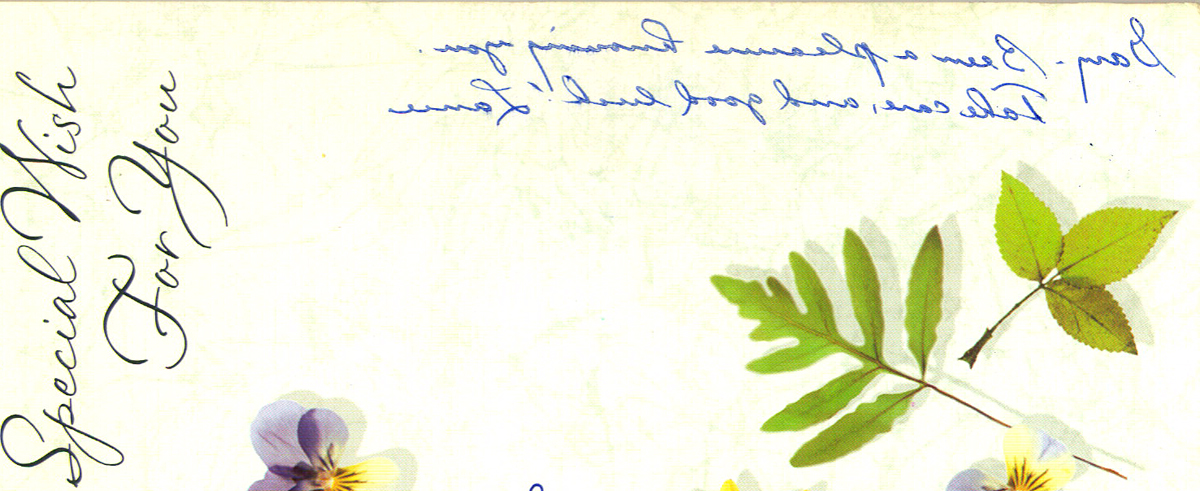 Special Wish
For You
Gary - Been a pleasure knowing you.
Take care, and good luck!